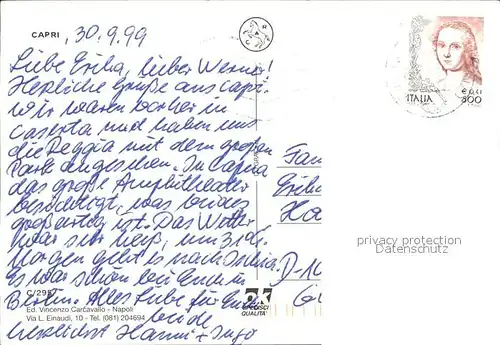 CAPRI, 30.9.99
Liebe Erika, lieber Werner!
Herzliche Grüße aus Capri.
Wir waren vorher in
Caserta und haben uns
die Reggia mit dem großen
Park angesehen. In Capua
das große Amphitheater
besichtigt, was beides
großartig ist. Das Wetter
war sehr heiß, um 3
Morgen geht es nach Ischia.
Es war schön bei Euch in
Berlin. Alles Liebe für Euch
beide
herzlichst Hanni + Ingo
C/295
Ed. Vincenzo Carcavallo - Napoli
Via L. Einaudi, 10 - Tel. (081) 204694
SPEDISCI
QUALITA'
ITALIA
800
Fam
Erik
Ha
D-1
privacy protection
datenschutz